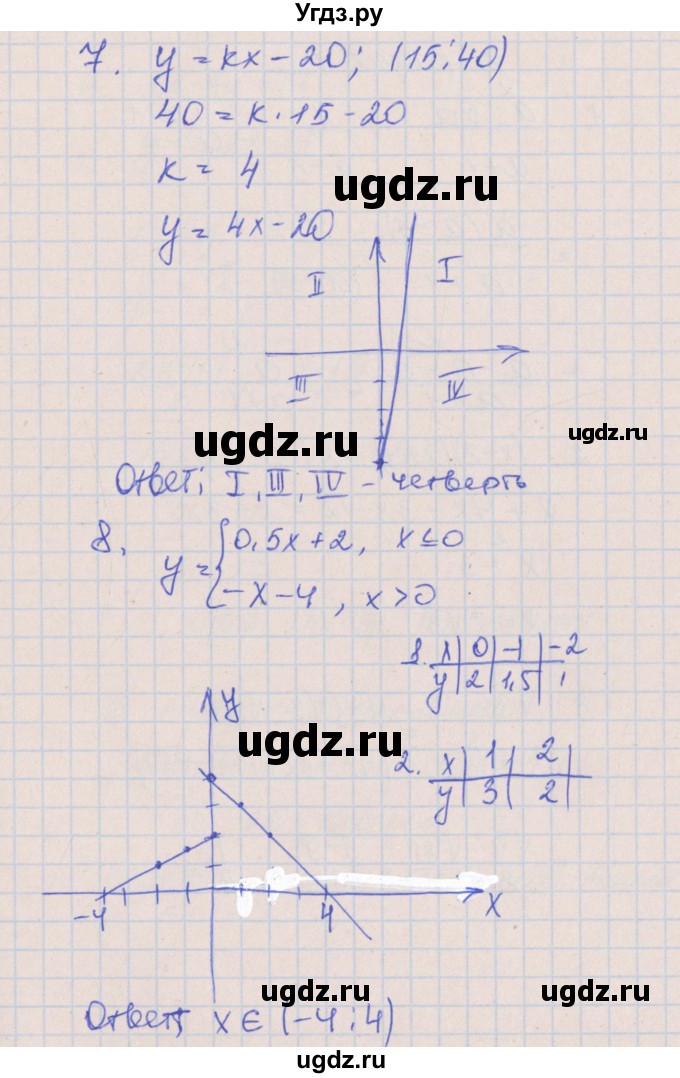 Угдз.ру
7. y = kx - 20; (15; 40)
40 = k · 15 - 20
k = 4
ugdz.ru
y = 4x - 20
II I
III IV
ugdz.ru
ugdz.ru
Ответ: I, III, IV - четверть
8. y = { 0,5x + 2, x ≤ 0
-x - 4, x > 0
1. x | 0 | -1 | -2
y | 2 | 1,5 | 1
y
ugdz.ru
ugdz.ru
2. x | 1 | 2
y | 3 | 2
-4 4 x
ugdz.ru
ugdz.ru
Ответ: x ∈ (-4; 4)
ugdz.ru